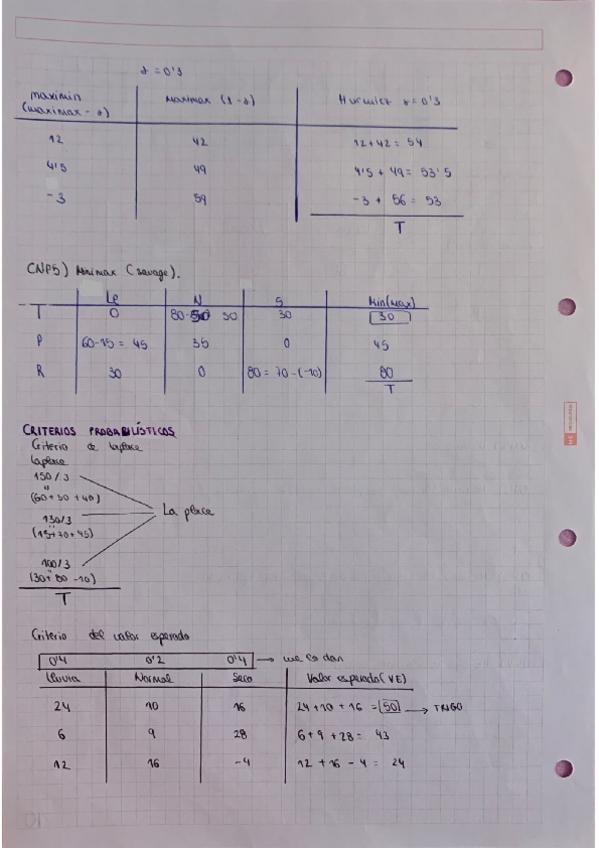 α = 0'3
maximin (maximax - α) | maximax (1 - α) | Hurwicz α = 0'3
12 | 42 | 12+42 = 54
4'5 | 49 | 4'5 + 49 = 53'5
-3 | 59 | -3 + 56 = 53
T
CNP5) Minimax (savage).
Le | N | S | Min(Max)
T | 0 | 80-50 30 | 30 | 30
P | 60-15 = 45 | 35 | 0 | 45
R | 30 | 0 | 80 = 70-(-10) | 80
T
CRITERIOS PROBABILÍSTICOS
Criterio de laplace
Laplace
150/3
(60+50+40)
130/3
(15+70+45)
La place
100/3
(30+80-10)
T
Criterio del valor esperado
0'4 0'2 0'4 → me lo dan
lluvia | Normal | Seco | Valor esperado (VE)
24 | 10 | 16 | 24+10+16 = 50 → TRIGO
6 | 9 | 28 | 6+9+28 = 43
12 | 16 | -4 | 12 + 16 - 4 = 24